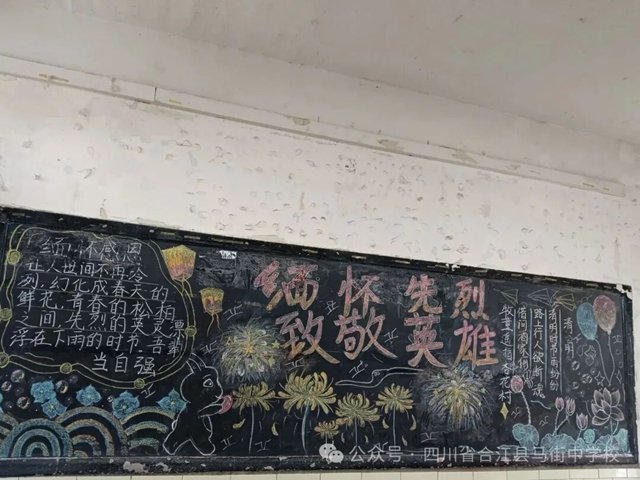 缅怀感恩
让人世间不再冷
列,幻化成春天的
鲜花,青春的松柏
之间,先烈的英灵
浮在下雨的时节,吾
辈
当自强
缅怀先烈
致敬英雄
清明
清明时节雨纷纷
路上行人欲断魂
借问酒家何处有
牧童遥指杏花村
公众号·四川省合江县马街中学校